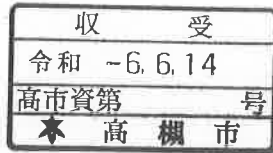 収 受
令和 -6.6.14
高市資第 号
高槻市